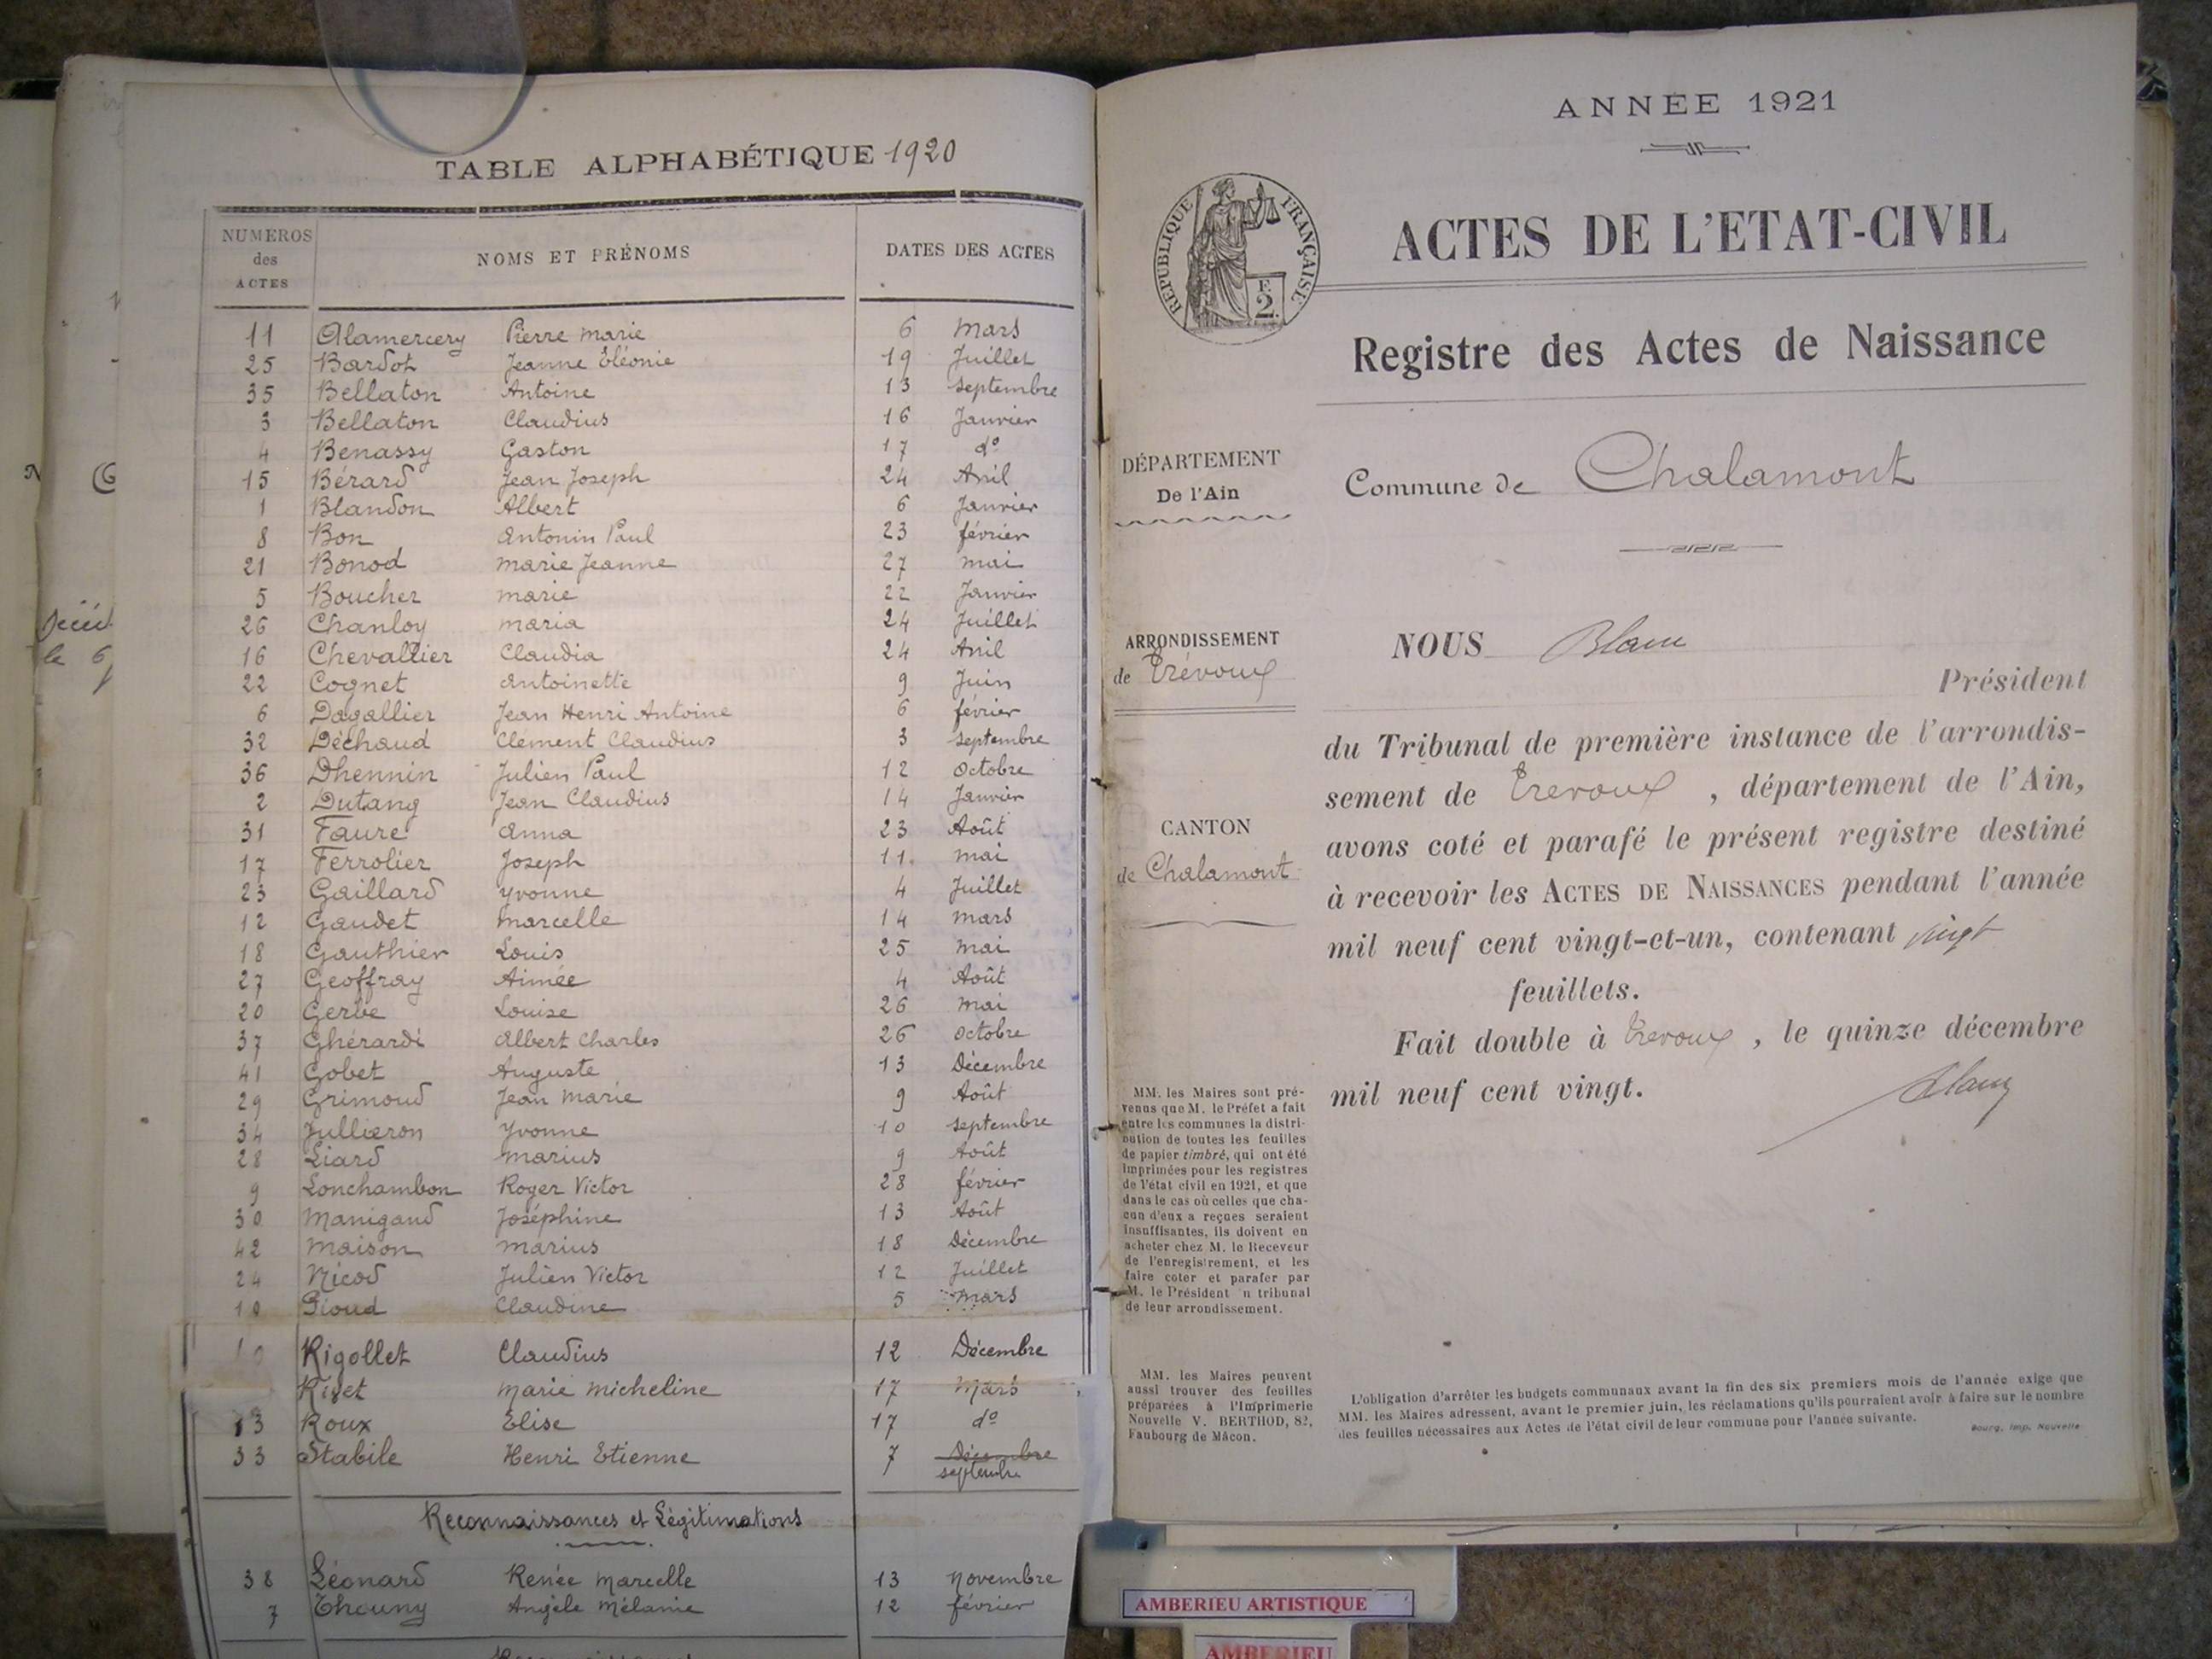 TABLE ALPHABÉTIQUE 1920
NUMEROS des ACTES NOMS ET PRÉNOMS DATES DES ACTES
11 Alamercery Pierre Marie 6 Mars
25 Bardot Jeanne Eléonie 19 Juillet
35 Bellaton Antoine 13 Septembre
3 Bellaton Claudius 16 Janvier
4 Benassy Gaston 17 do
15 Bérard Jean Joseph 24 Avril
1 Blandon Albert 6 Janvier
8 Bon Antonin Paul 23 février
21 Bonod Marie Jeanne 27 mai
5 Boucher Marie 22 Janvier
26 Chanloy Maria 24 Juillet
16 Chevallier Claudia 24 Avril
22 Cognet Antoinette 9 Juin
6 Dagallier Jean Henri Antoine 6 février
32 Déchaud Clément Claudius 3 Septembre
36 Dhennin Julien Paul 12 Octobre
2 Dutang Jean Claudius 14 Janvier
31 Faure Anna 23 Août
17 Ferrolier Joseph 11 mai
23 Gaillard Yvonne 4 Juillet
12 Gaudet Marcelle 14 mars
18 Gauthier Louis 25 mai
27 Geoffray Aimée 4 Août
20 Gerbe Louise 26 mai
37 Ghérardi Albert Charles 26 Octobre
41 Gobet Auguste 13 Décembre
29 Grimoud Jean Marie 9 Août
34 Jullieron Yvonne 10 Septembre
28 Liard Marius 9 Août
9 Lonchambon Roger Victor 28 février
30 Manigand Joséphine 13 Août
42 Maison Marius 18 Décembre
24 Nicod Julien Victor 12 Juillet
10 Pioud Claudine 5 Mars
Rigollet Claudius 12 Décembre
Rivet Marie Micheline 17 Mars
13 Roux Elise 17 do
33 Stabile Henri Etienne 7 Décembre
septembre
Reconnaissances et Légitimations
38 Léonard Renée Marcelle 13 Novembre
7 Thouny Angèle Mélanie 12 février
ANNÉE 1921
RÉPUBLIQUE FRANÇAISE
F.
2.
ACTES DE L'ETAT-CIVIL
Registre des Actes de Naissance
DÉPARTEMENT
De l'Ain
Commune de Chalamont
ARRONDISSEMENT
de Trévoux
CANTON
de Chalamont
NOUS Blanc
Président
du Tribunal de première instance de l'arrondis-
sement de Trevoux, département de l'Ain,
avons coté et parafé le présent registre destiné
à recevoir les ACTES DE NAISSANCES pendant l'année
mil neuf cent vingt-et-un, contenant vingt
feuillets.
Fait double à Trevoux, le quinze décembre
mil neuf cent vingt.
Blanc
MM. les Maires sont pré-
venus que M. le Préfet a fait
entre les communes la distri-
bution de toutes les feuilles
de papier timbré, qui ont été
imprimées pour les registres
de l'état civil en 1921, et que
dans le cas où celles que cha-
cun d'eux a reçues seraient
insuffisantes, ils doivent en
acheter chez M. le Receveur
de l'enregistrement, et les
faire coter et parafer par
M. le Président u tribunal
de leur arrondissement.
MM. les Maires peuvent
aussi trouver des feuilles
préparées à l'Imprimerie
Nouvelle V. BERTHOD, 82,
Faubourg de Mâcon.
L'obligation d'arrêter les budgets communaux avant la fin des six premiers mois de l'année exige que
MM. les Maires adressent, avant le premier juin, les réclamations qu'ils pourraient avoir à faire sur le nombre
des feuilles nécessaires aux Actes de l'état civil de leur commune pour l'année suivante.
Bourg, Imp. Nouvelle
AMBERIEU ARTISTIQUE
AMBERIEU